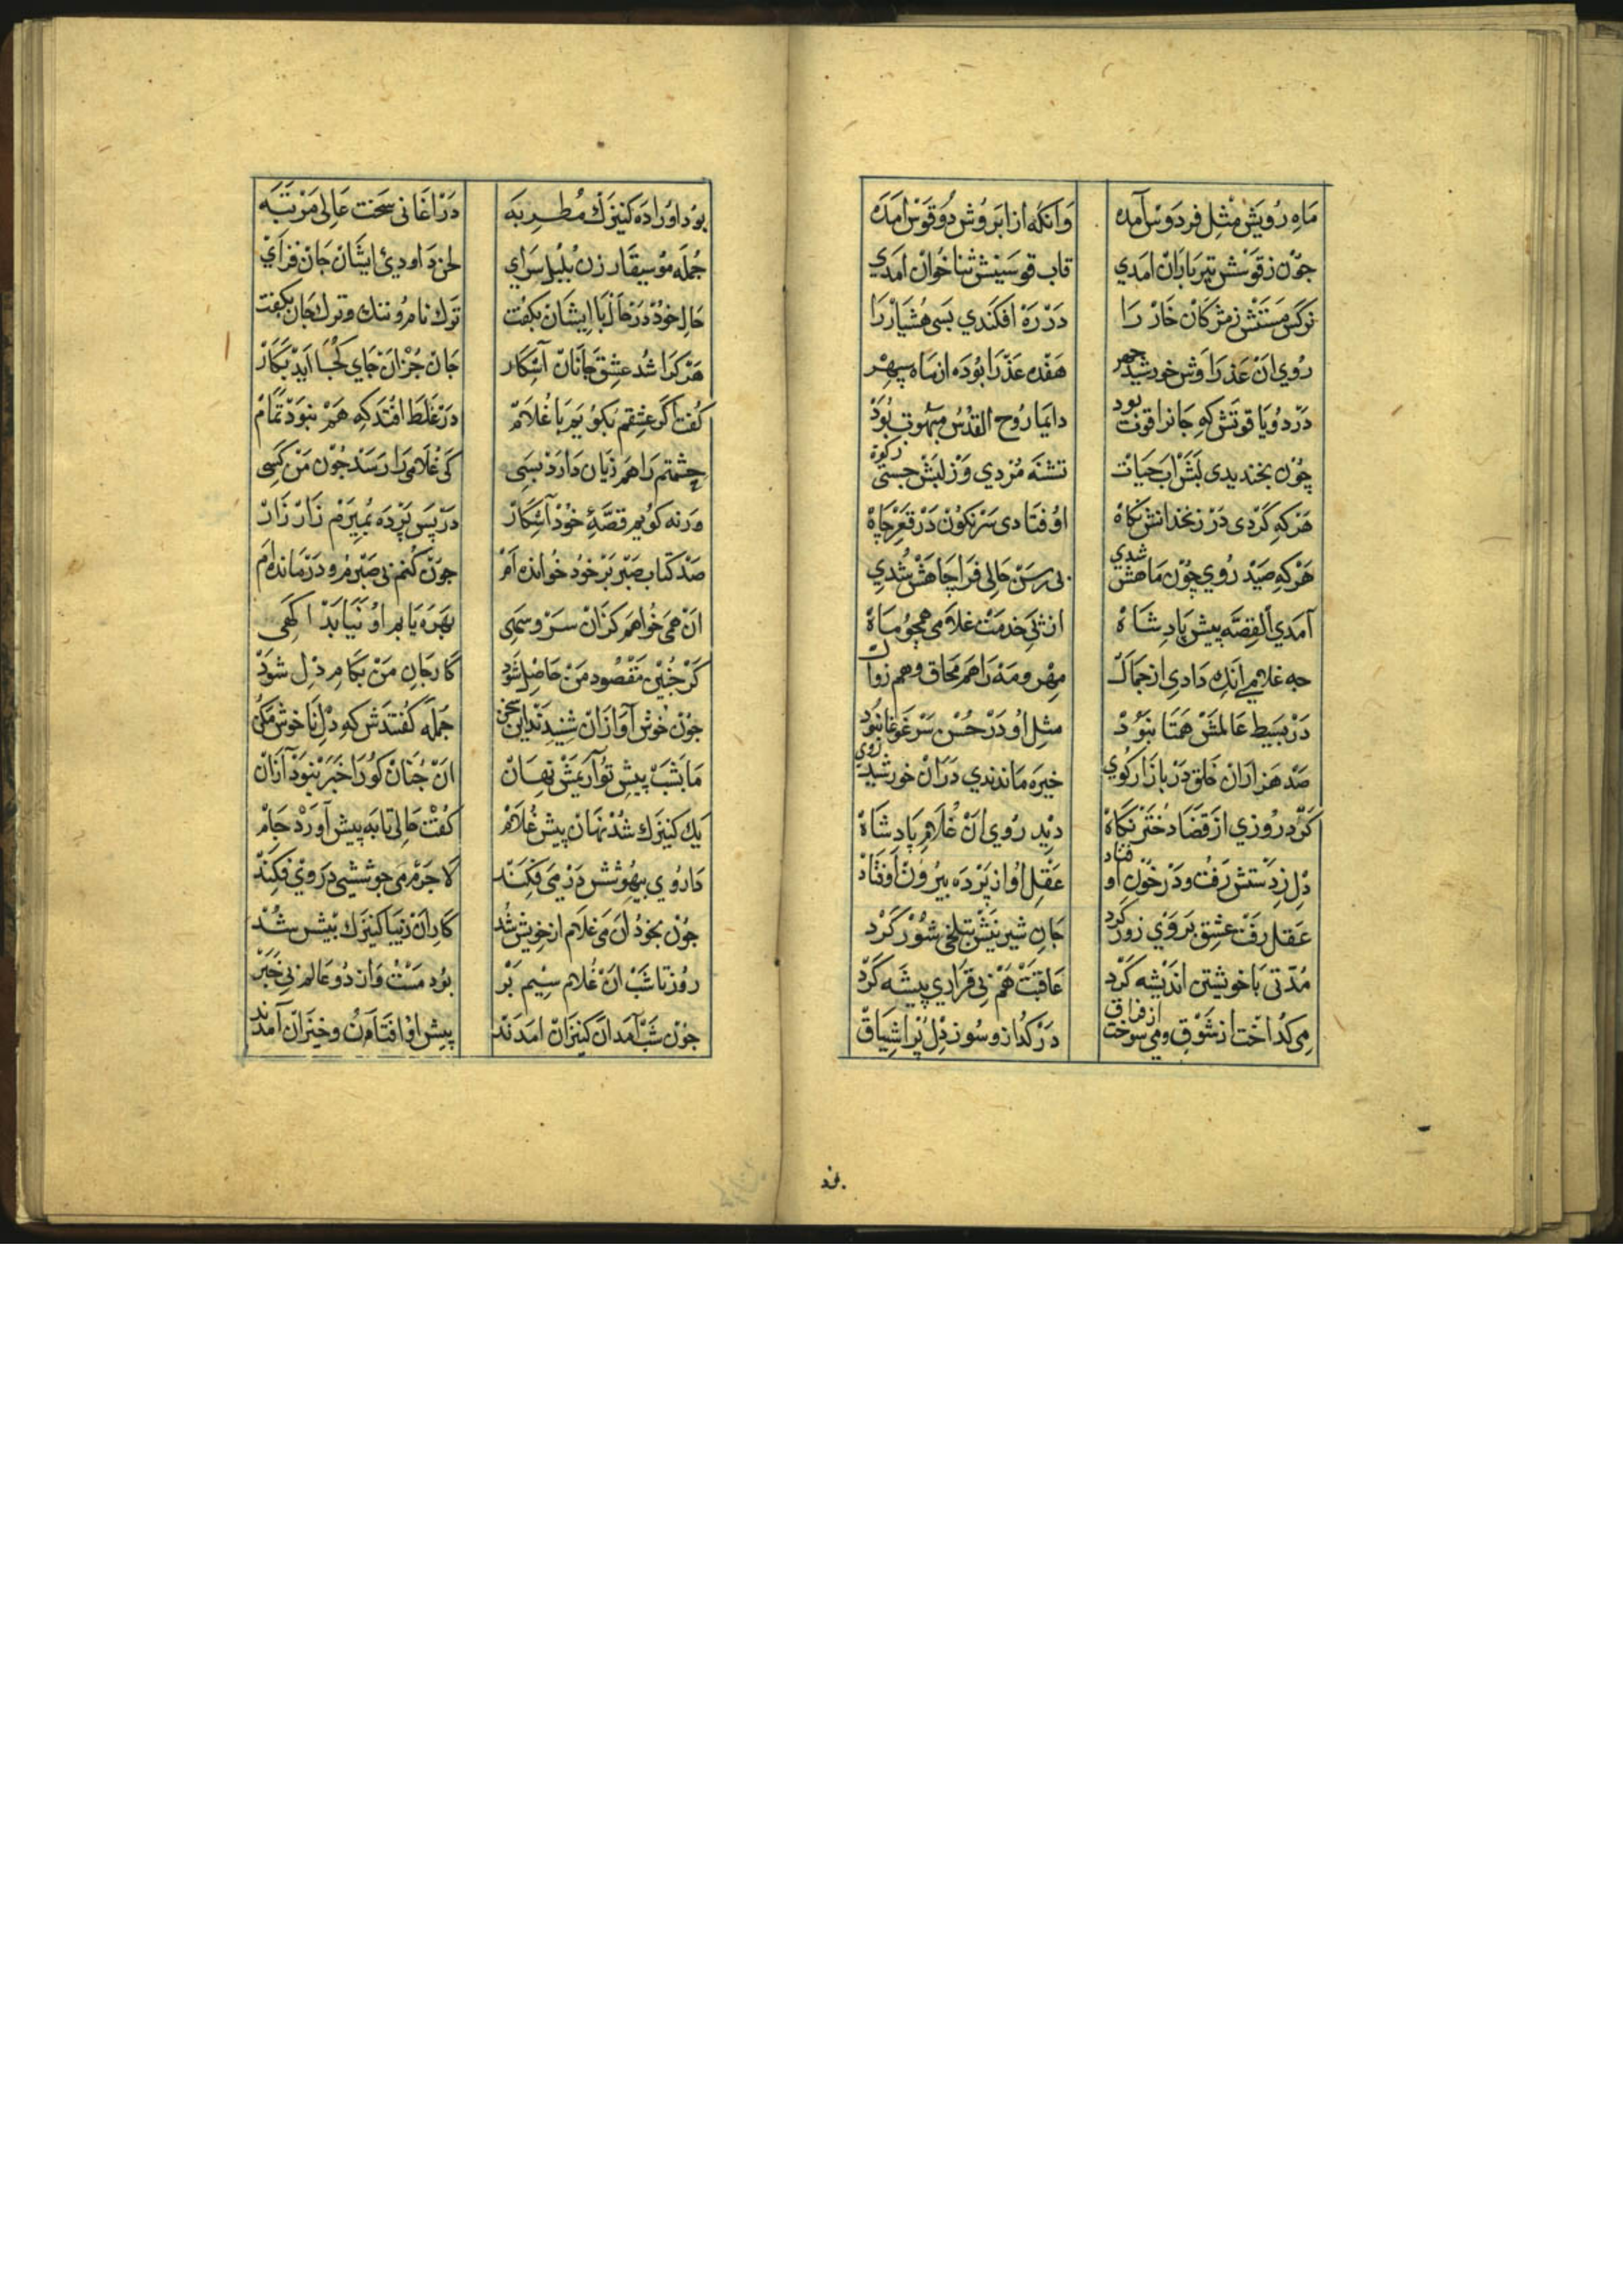 مَاهِ رُويَش مِثلِ فردَوس آمَده وَانكَه از ابَروُش دُو قَوس امَدَه
جوُن زقَوسَش تير بَارَان امَدي قاب قوسَينش ثنا خوَان امَدي
نَركس مَستَش زمژكان خار رَا دَر رَه افكندي بَسي هُشيَار رَا
رُوي ان عَذرَا وَش خورشيد چهر هَفده عَذرَا بُودَه از مَاه سپهر
دَر دُو يَا قوتَش كهِ جَانرا قوت بود دايمَا روُح القدُس مبهُوت بُود
چُون بخنديدي لَبَش ابِ حيَات تشنَه مُردي وَز لبَش جستي زكوة
هَر كهِ كَردي دَر زنخدَانش نكاه اوُفتَادي سَرنكوُن دَر قعَر چاه
هَر كهِ صَيد رُوي چوُن مَاهش شدي بي رسَن حَالي فرَا چَاهَش شُدي
آمَدي القِصَّه پيش پادِشَاه از پَي خدمَت غلامي همچو مَاه
چه غلامي انكه دَادي از جمَال مِهر ومَه رَا هَم مُحاق وهم زوال
دَر بَسَيط عَالمَش همَتا نبَوُد مثلِ اوُ دَر حُسن سَر غَوغا نبُود
صَد هَزارَان خَلق دَر بازَار كوُي خيرَه مَاندندي دَرَان خورشيد روي
كَرد روُزي از قضَا دُختر نكَاه ديد رُوي ان غُلامِ پادِ شَاه
دِل زدَستش رَفت ودَر خوُن او فتاد عَقلِ اوُ از پَردَه بيرُون اَوفتاد
عَقل رَفت عِشق بَر وَي زور كَرد جَانِ شيرينَش بتلخي شوُر كَرد
مُدّتي بَا خويشتن اندَيشه كَرد عَاقبَت هَم بي قرَاري پيشَه كَرد
مي كدَاخت از شَوقِ ومي سوخت از فراق دَر كدَاز وسُوز دِل پُر اشتياق
بُود اوُرا دَه كنيزَك مُطِربَه دَر اغَاني سَخت عَالِي مَرتَبَه
جُملَه موُسيقار زن بُلبل سَرَاي لحن دَاودي ايشَان جَان فزَاي
حَال خوُد دَر حَال بَا ايشَان بكفت تَرك نام وُ ننك وترك جان بكفت
هَر كرَا شُد عشِق جَانَان آشكار جَان جُزان جَاي كجَا ايَد بكَار
كفت اكَر عشقم بكوُيَم بَا غُلام دَر غلَط افتَد كهِ هَم نبوَد تمَام
حِشمتم رَا هَم زيَان دَارَد بسَي كي غُلامي رَا رسَد چُون مَن كسَي
ور نه كوُيم قصّهِٔ خُود آشكَار دَر پَس پَردَه بميرَم زَار زَار
صَد كتاب صَبر بَر خوُد خُوانده اَم چوُن كُنم بي صَبرم ودَر ماندَه اَم
ان هَمي خوُاهَم كزَان سَرو سَهي بَهرَه يَابم اوُ نيَابَد اكَهي
كَر چنين مَقصوُد مَن حَاصِل شوَد كار جَانِ مَن بكَام دِل شوَد
چوُن خُوش آوَازان شنيدَند اين سخن جُملَه كفتندَش كهِ دِل نَاخوش مكن
مَا بشَب پيش تو آريمَش نهان ان چُنان كوُرَا خبَر نبوَد آزان
يَك كنيزَك شُد نهان پيش غُلام كفُت حَالي تا بَه پيش آورَد جَام
دَاروُي بيهوُشش دَر مَي فكنَد لا جَرم مَي جو ششي در وَي فكند
چوُن بخوُد ان مَي غلام از خويش شُد كار ان زيبَا كنيزَك بيش شد
روُز تا شَب ان غُلام سيم بَر بوُد مَست وَاز دُو عَالم بي خبَر
چوُن شَب آمَد ان كنيزَان امَدَند پيش اوُ افتان وُخيزَان آمدند